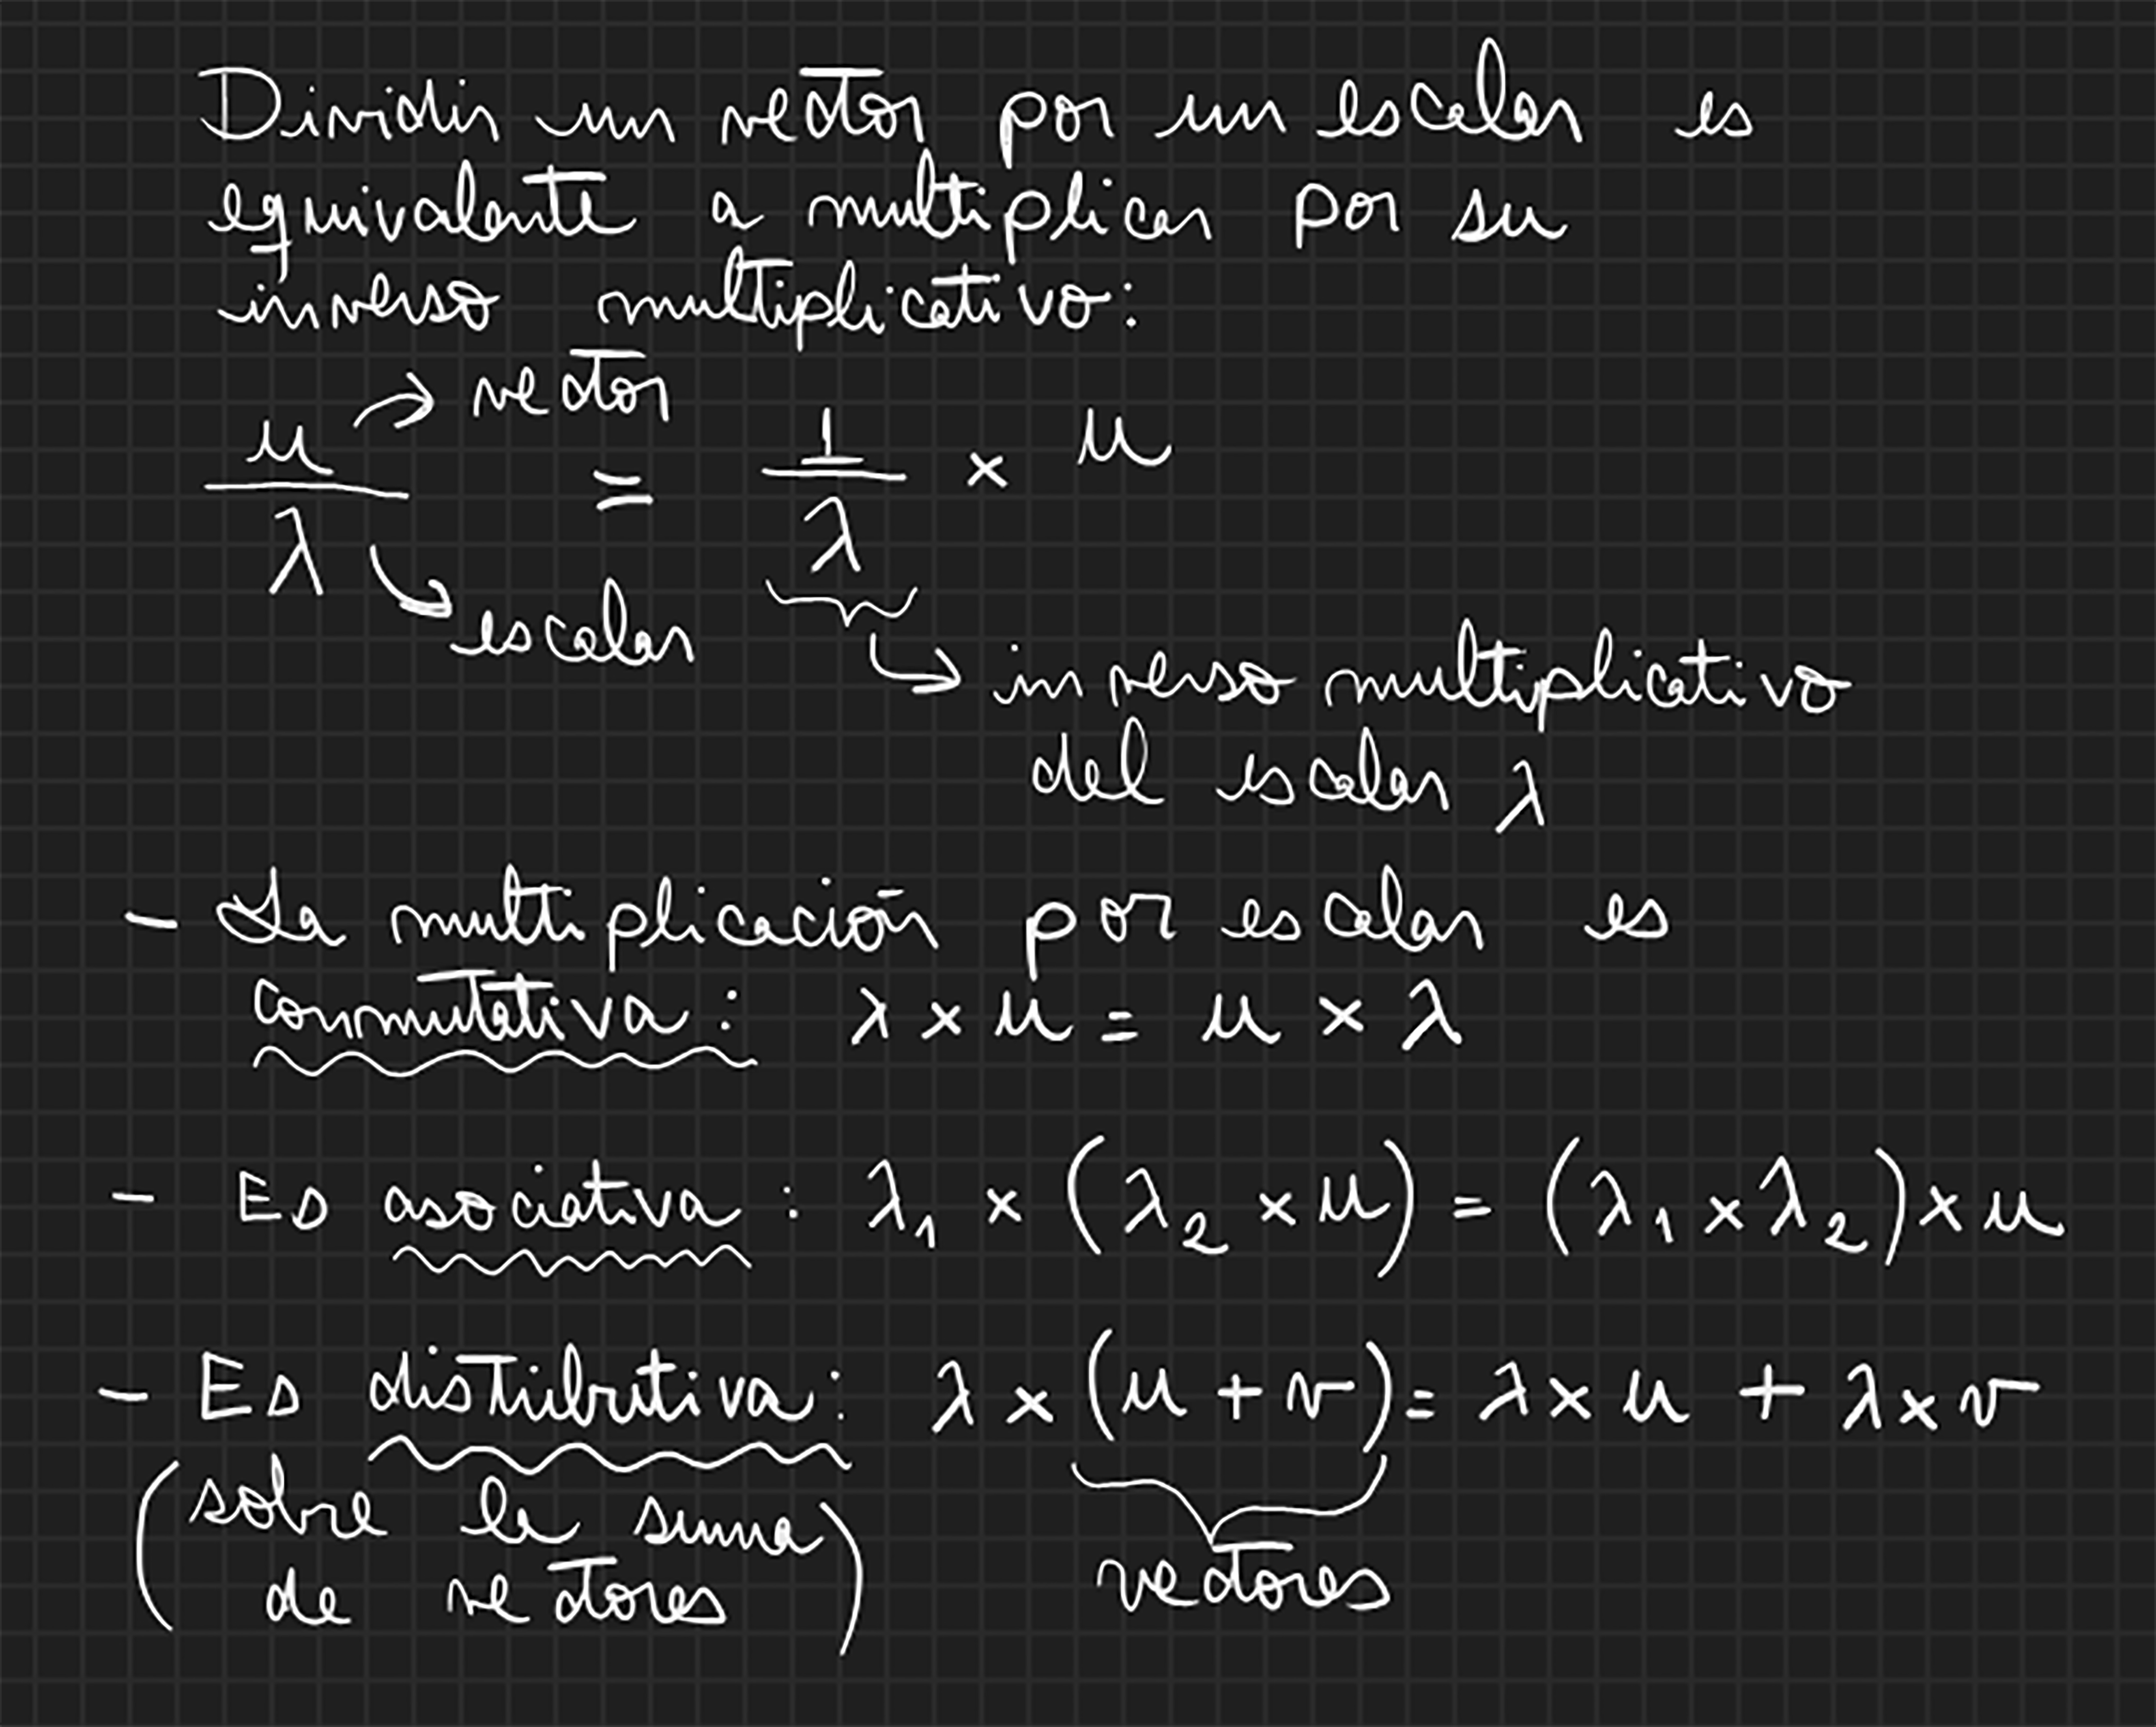 Dividir un vector por un escalar es
equivalente a multiplicar por su
inverso multiplicativo:
u → vector
u/λ = 1/λ × u
escalar
inverso multiplicativo
del escalar λ
- La multiplicación por escalar es
conmutativa: λ × u = u × λ
- Es asociativa: λ₁ × (λ₂ × u) = (λ₁ × λ₂) × u
- Es distributiva: λ × (u + v) = λ × u + λ × v
(sobre la suma
de vectores)
vectores